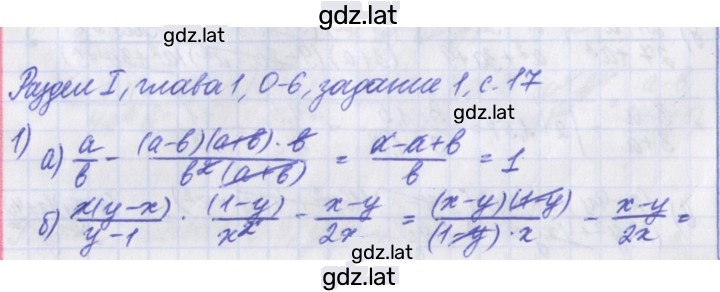 gdz.lat
gdz.lat
Раздел I, глава 1, С-6, задание 1, с. 17
1) а) a/b - (a-b)(a+b)·b / b²(a+b) = a-a+b / b = 1
б) x(y-x) / y-1 · (1-y) / x² - x-y / 2x = (x-y)(1-y) / (1-y)·x - x-y / 2x =
gdz.lat